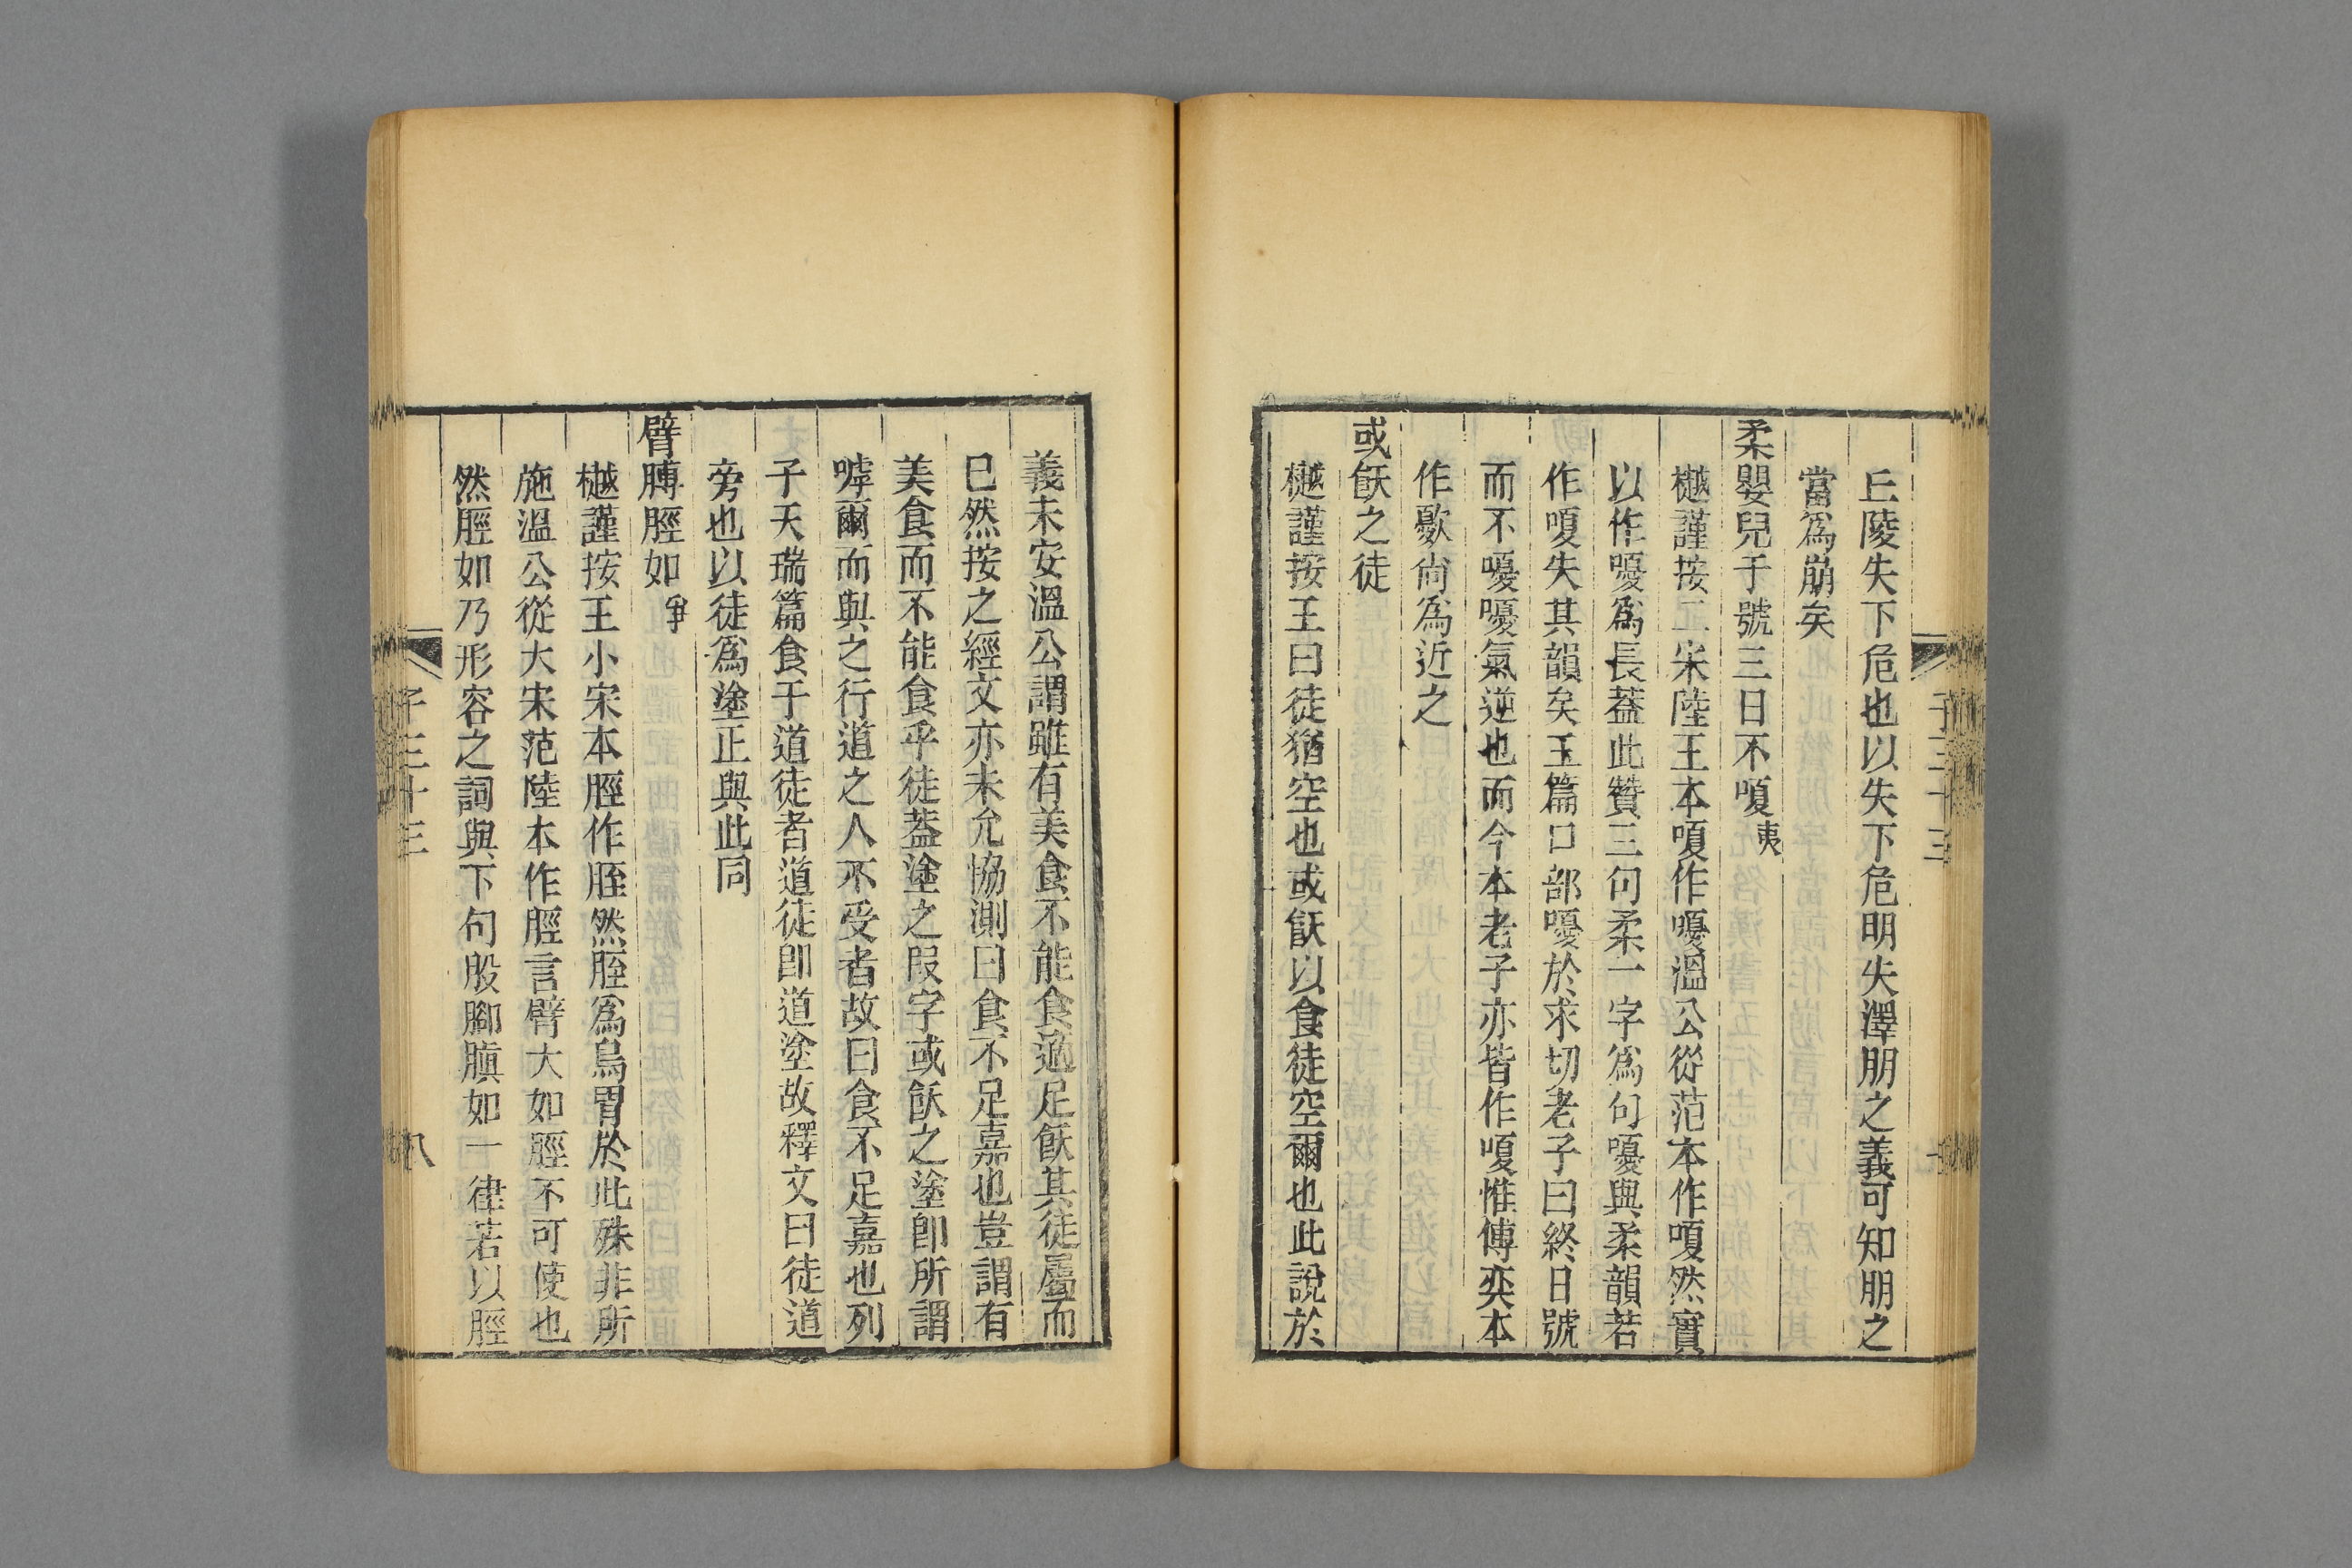 丘陵失下危也以失下危明失澤朋之義可知朋之
當爲崩矣
柔嬰兒于號三日不嗄夷
樾謹按二宋陸王本嗄作嚘溫公從范本作嗄然實
以作嚘爲長蓋此贊三句柔一字爲句嚘與柔韻若
作嗄失其韻矣玉篇口部嚘於求切老子曰終日號
而不嚘嚘氣逆也而今本老子亦皆作嗄惟傅奕本
作歐尙爲近之
或飫之徒
樾謹按王曰徒猶空也或飫以食徒空爾也此說於
義未安溫公謂雖有美食不能食適足飫其徒屬而
已然按之經文亦未允協測曰食不足嘉也豈謂有
美食而不能食乎徒蓋塗之叚字或飫之塗卽所謂
嘑爾而與之行道之人不受者故曰食不足嘉也列
子天瑞篇食于道徒者道徒卽道塗故釋文曰徒道
旁也以徒爲塗正與此同
臂膊脛如爭
樾謹按王小宋本脛作胵然胵爲鳥胃於此殊非所
施溫公從大宋范陸本作脛言臂大如脛不可使也
然脛如乃形容之詞與下句股腳䐜如一律若以脛
子三十三
八